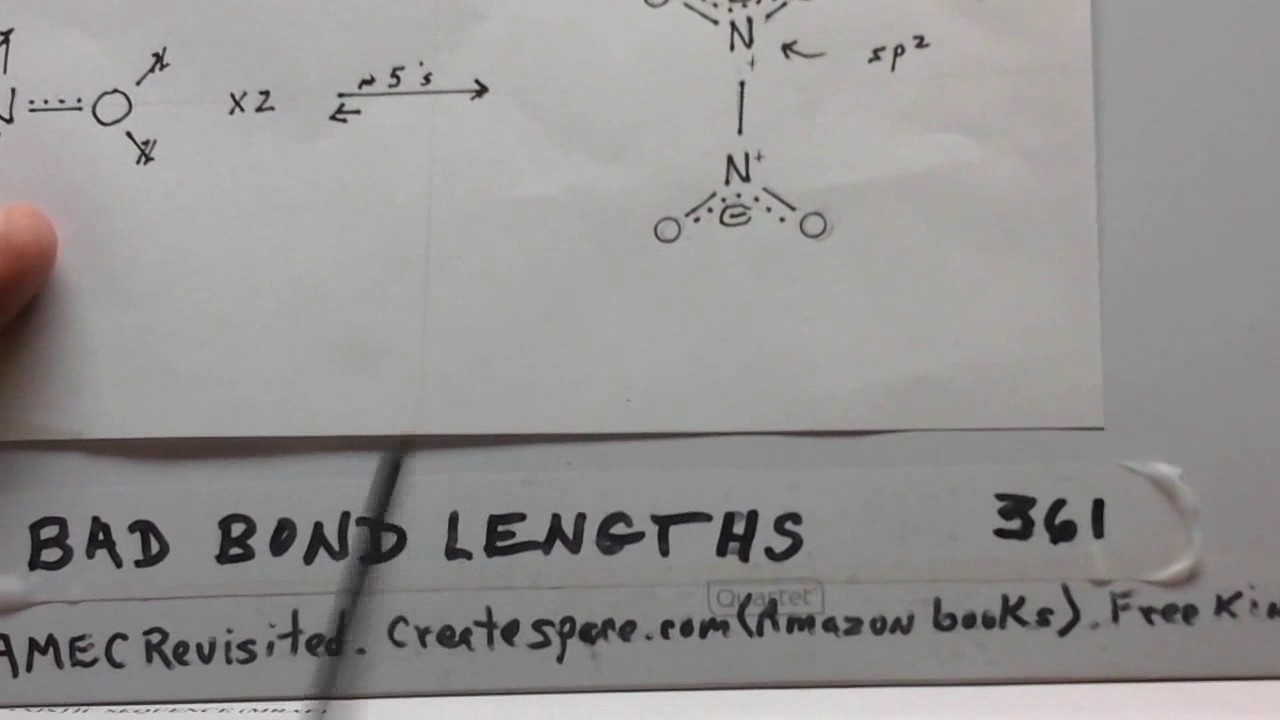 N
sp²
+
~ 5's
N O x2
N+
O ⊖ O
BAD BOND LENGTHS 361
Quartet
AMEC Revisited. Createspace.com(Amazon books). Free